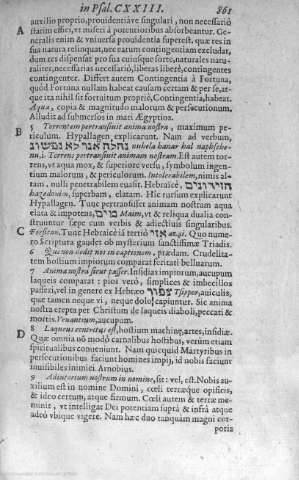 in Psal. CXXIII. 861
auxilio proprio, prouidentiave singulari, non necessariò
A statim effici, vt miseri à potentioribus absorbeantur. Ge-
neralis enim & vniuersa prouidentia superest, quæ res in
sua natura relinquat, nec earum contingentiam excludat,
dum res dispensat pro sua cuiusque sorte, naturales natu-
raliter, necessarias necessariò, liberas liberè, contingentes
contingenter. Differt autem Contingentia à Fortuna,
quòd Fortuna nullam habeat causam certam & per se, at-
que ita nihil sit fortuitum propriè, Contingentia, habeat.
Aqua, copia & magnitudo malorum & persecutionum.
Alludit ad submersos in mari Ægyptios.
B 5 Torrentem pertransiuit anima nostra, maximum pe-
riculum. Hypallagen explicarunt. Nam ad verbum,
נחלה עבר על נפשנו
nu. Torrens pertransiuit animam nostram. Est autem tor-
rens, vt aqua mox, & superiore versu, symbolum ingen-
tium malorum, & periculorum. Intolerabilem, nimis al-
tam, nulli penetrabilem euasit. Hebraicè, הזידונים
hazedonim, superbam, elatam. Hic rursum explicarunt
Hypallagen. Tunc pertransisset animam nostram aqua
elata & impotens, מים Maim, vt & reliqua dualia con-
struuntur sæpe cum verbis & adiectiuis singularibus.
C Forsitan. Tunc Hebraicè iā tertiò אזי azai. Quo nume-
ro Scriptura gaudet ob mysterium sanctissimæ Triadis.
6 Qui non dedit nos in captionem, prædam. Crudelita-
tem hostium impiorum comparat feritati belluarum.
7 Anima nostra sicut passer. Insidias impiorum, aucupum
laqueis comparat: pios verò, simplices & imbecillos
passeri, vel in genere ex Hebræo צפור Tsippor, auiculis,
quæ tamen neque vi, neque dolo capiuntur. Sic anima
nostra erepta per Christum de laqueis diaboli, peccati &
mortis. Venantium, aucupum.
D 8 Laqueus contritus est, hostium machinæ, artes, insidiæ.
Quæ omnia nō modò carnalibus hostibus, verùm etiam
spiritualibus conueniunt. Nam quicquid Martyribus in
persecutionibus faciunt homines impij, id nobis faciunt
inuisibiles inimici. Arnobius.
9 Adiutorium nostrum in nomine, sit: vel, est. Nobis au-
xilium est in nomine Domini, cœli terræque opificis,
& ideo certum, atque firmum. Cœli autem & terræ me-
minit, vt intelligat Dei potentiam suprà & infrà atque
adeò vbique vigere. Nam hæc duo tanquam magni cor-
poris